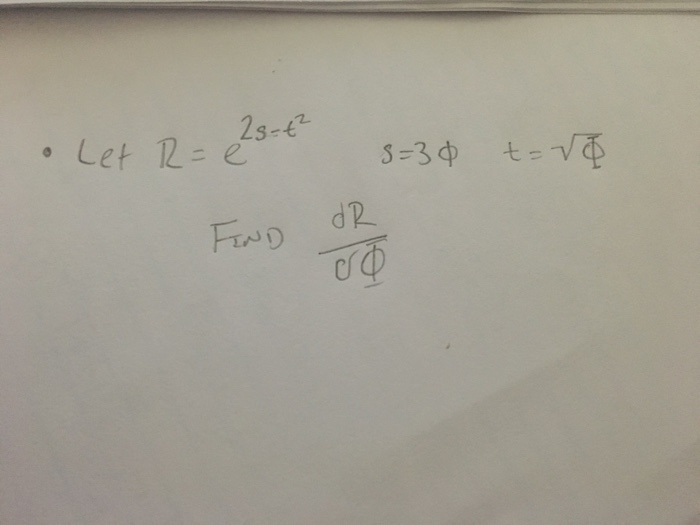 • Let R = e^{2s-t²} s=3Φ t=√Φ
FIND dR/dΦ